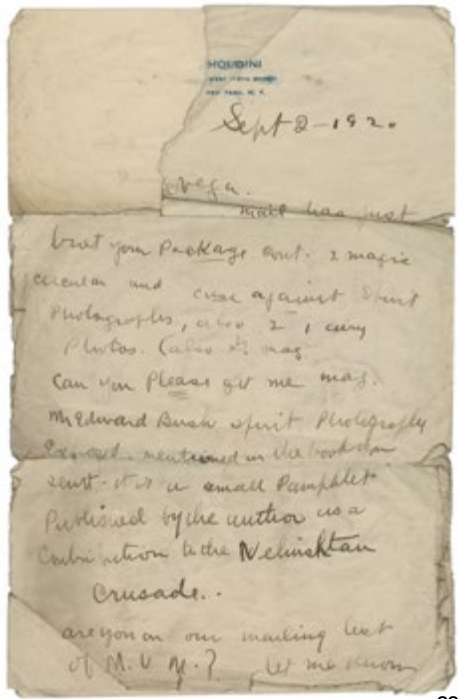 HOUDINI
NEW YORK, N. Y.
Sept 2-1920
mail has just
brot your Package cont. 2 magic
circular and case against Spirit
Photographs, also 2
Photos. (also mag
Can you Please get me mag.
Mr Edward Bush spirit Photography
Exposed. mentioned in the book you
sent- it is a small Pamphlet
Published by the author as a
Contribution to the Nehushtan
Crusade..
are you on our mailing list
of M. U M.? let me know